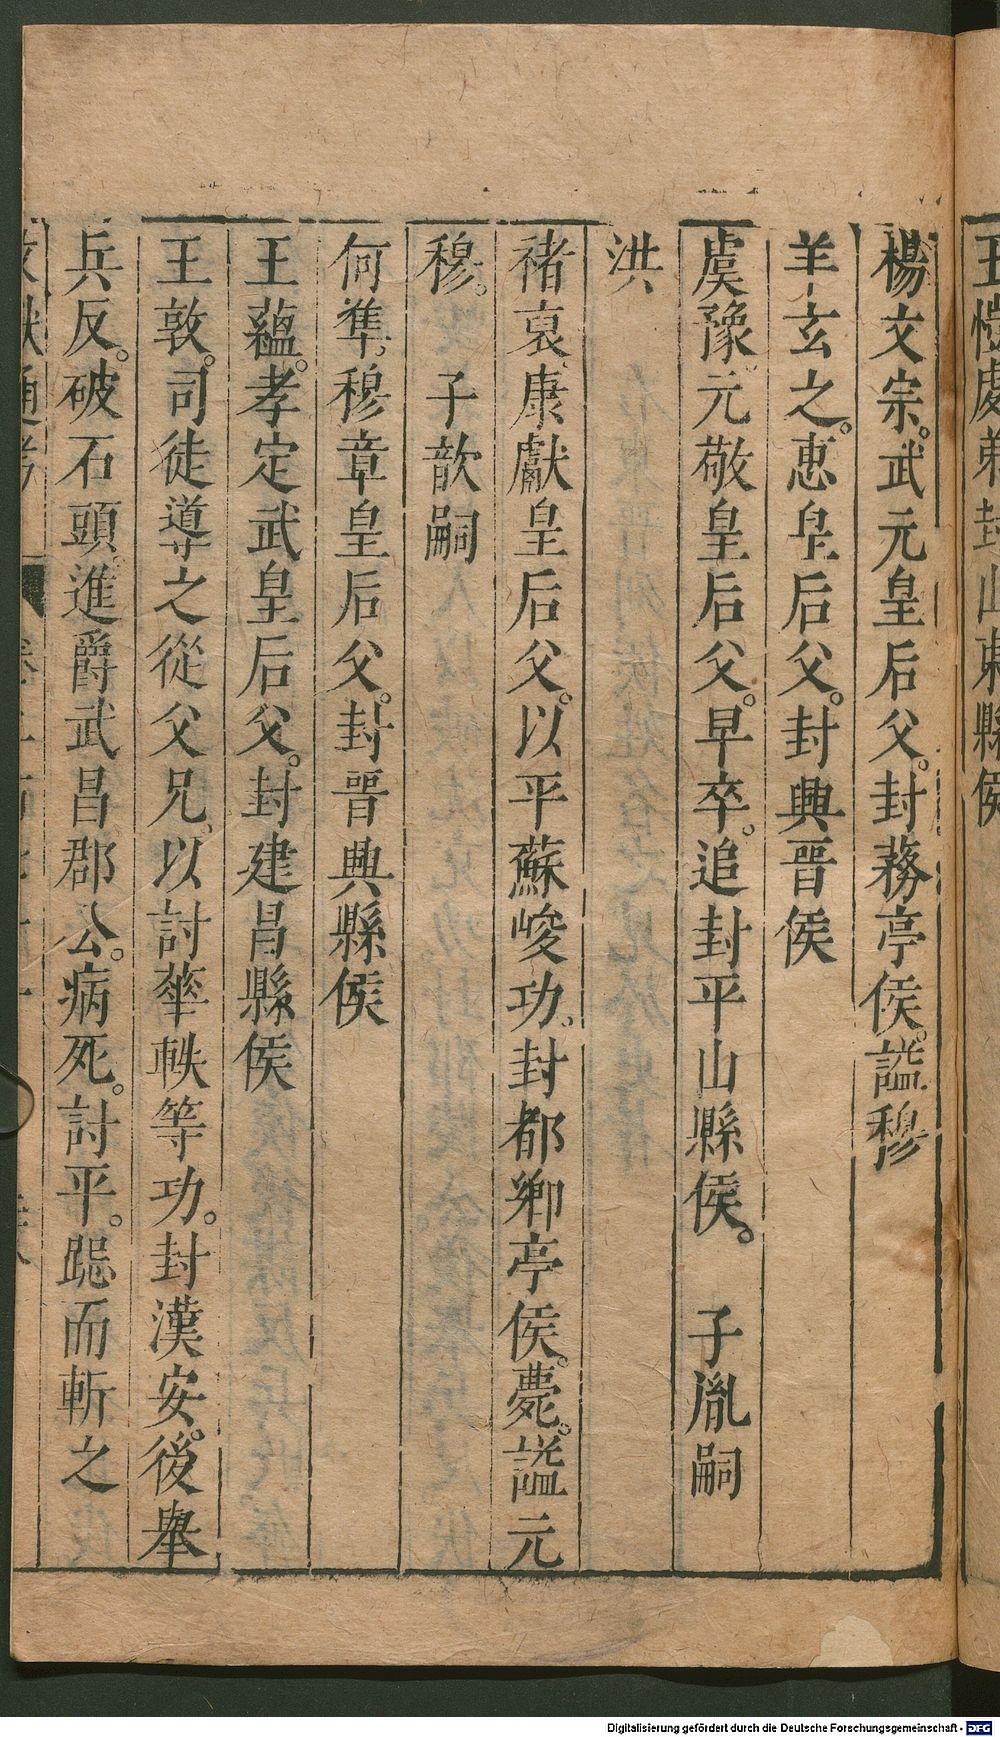 王愷虔弟封山東縣侯
楊文宗。武元皇后父。封務亭侯。謚穆
羊玄之。惠皇后父。封興晉侯
虞豫。元敬皇后父。早卒。追封平山縣侯。　子胤嗣
洪
禇裒。康獻皇后父。以平蘇峻功。封都鄉亭侯。薨。謚元
穆。　子歆嗣
何準。穆章皇后父。封晉興縣侯
王蘊。孝定武皇后父。封建昌縣侯
王敦。司徒導之從父兄。以討華軼等功。封漢安。後舉
兵反。破石頭。進爵武昌郡公。病死。討平。跽而斬之
文獻通考
Digitalisierung gefördert durch die Deutsche Forschungsgemeinschaft - DFG